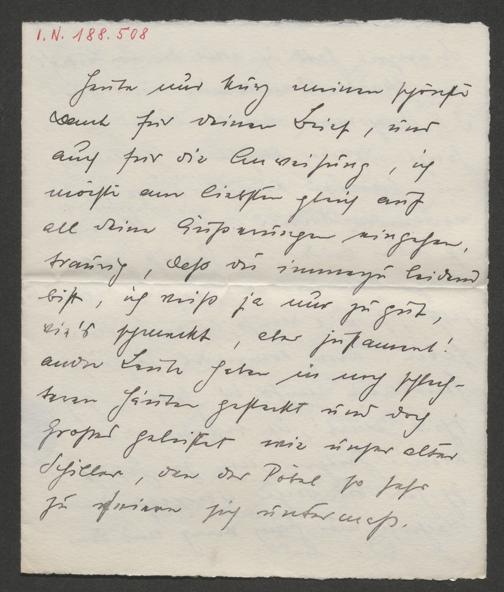 I.N. 188.508
Heute nur kurz meinen schönsten
Dank für deinen Brief, und
auch für die Anweisung, ich
möchte am liebsten gleich auf
all deine Äußerungen eingehen,
traurig, daß du immerzu leidend
bist, ich weiß ja nur zu gut,
wie's schmeckt, aber zusammen!
andre Leute haben in noch schlech-
teren Häuten gesteckt und doch
Großes geleistet wie unser alter
Schiller, den der Pöbel so sehr
zu sich